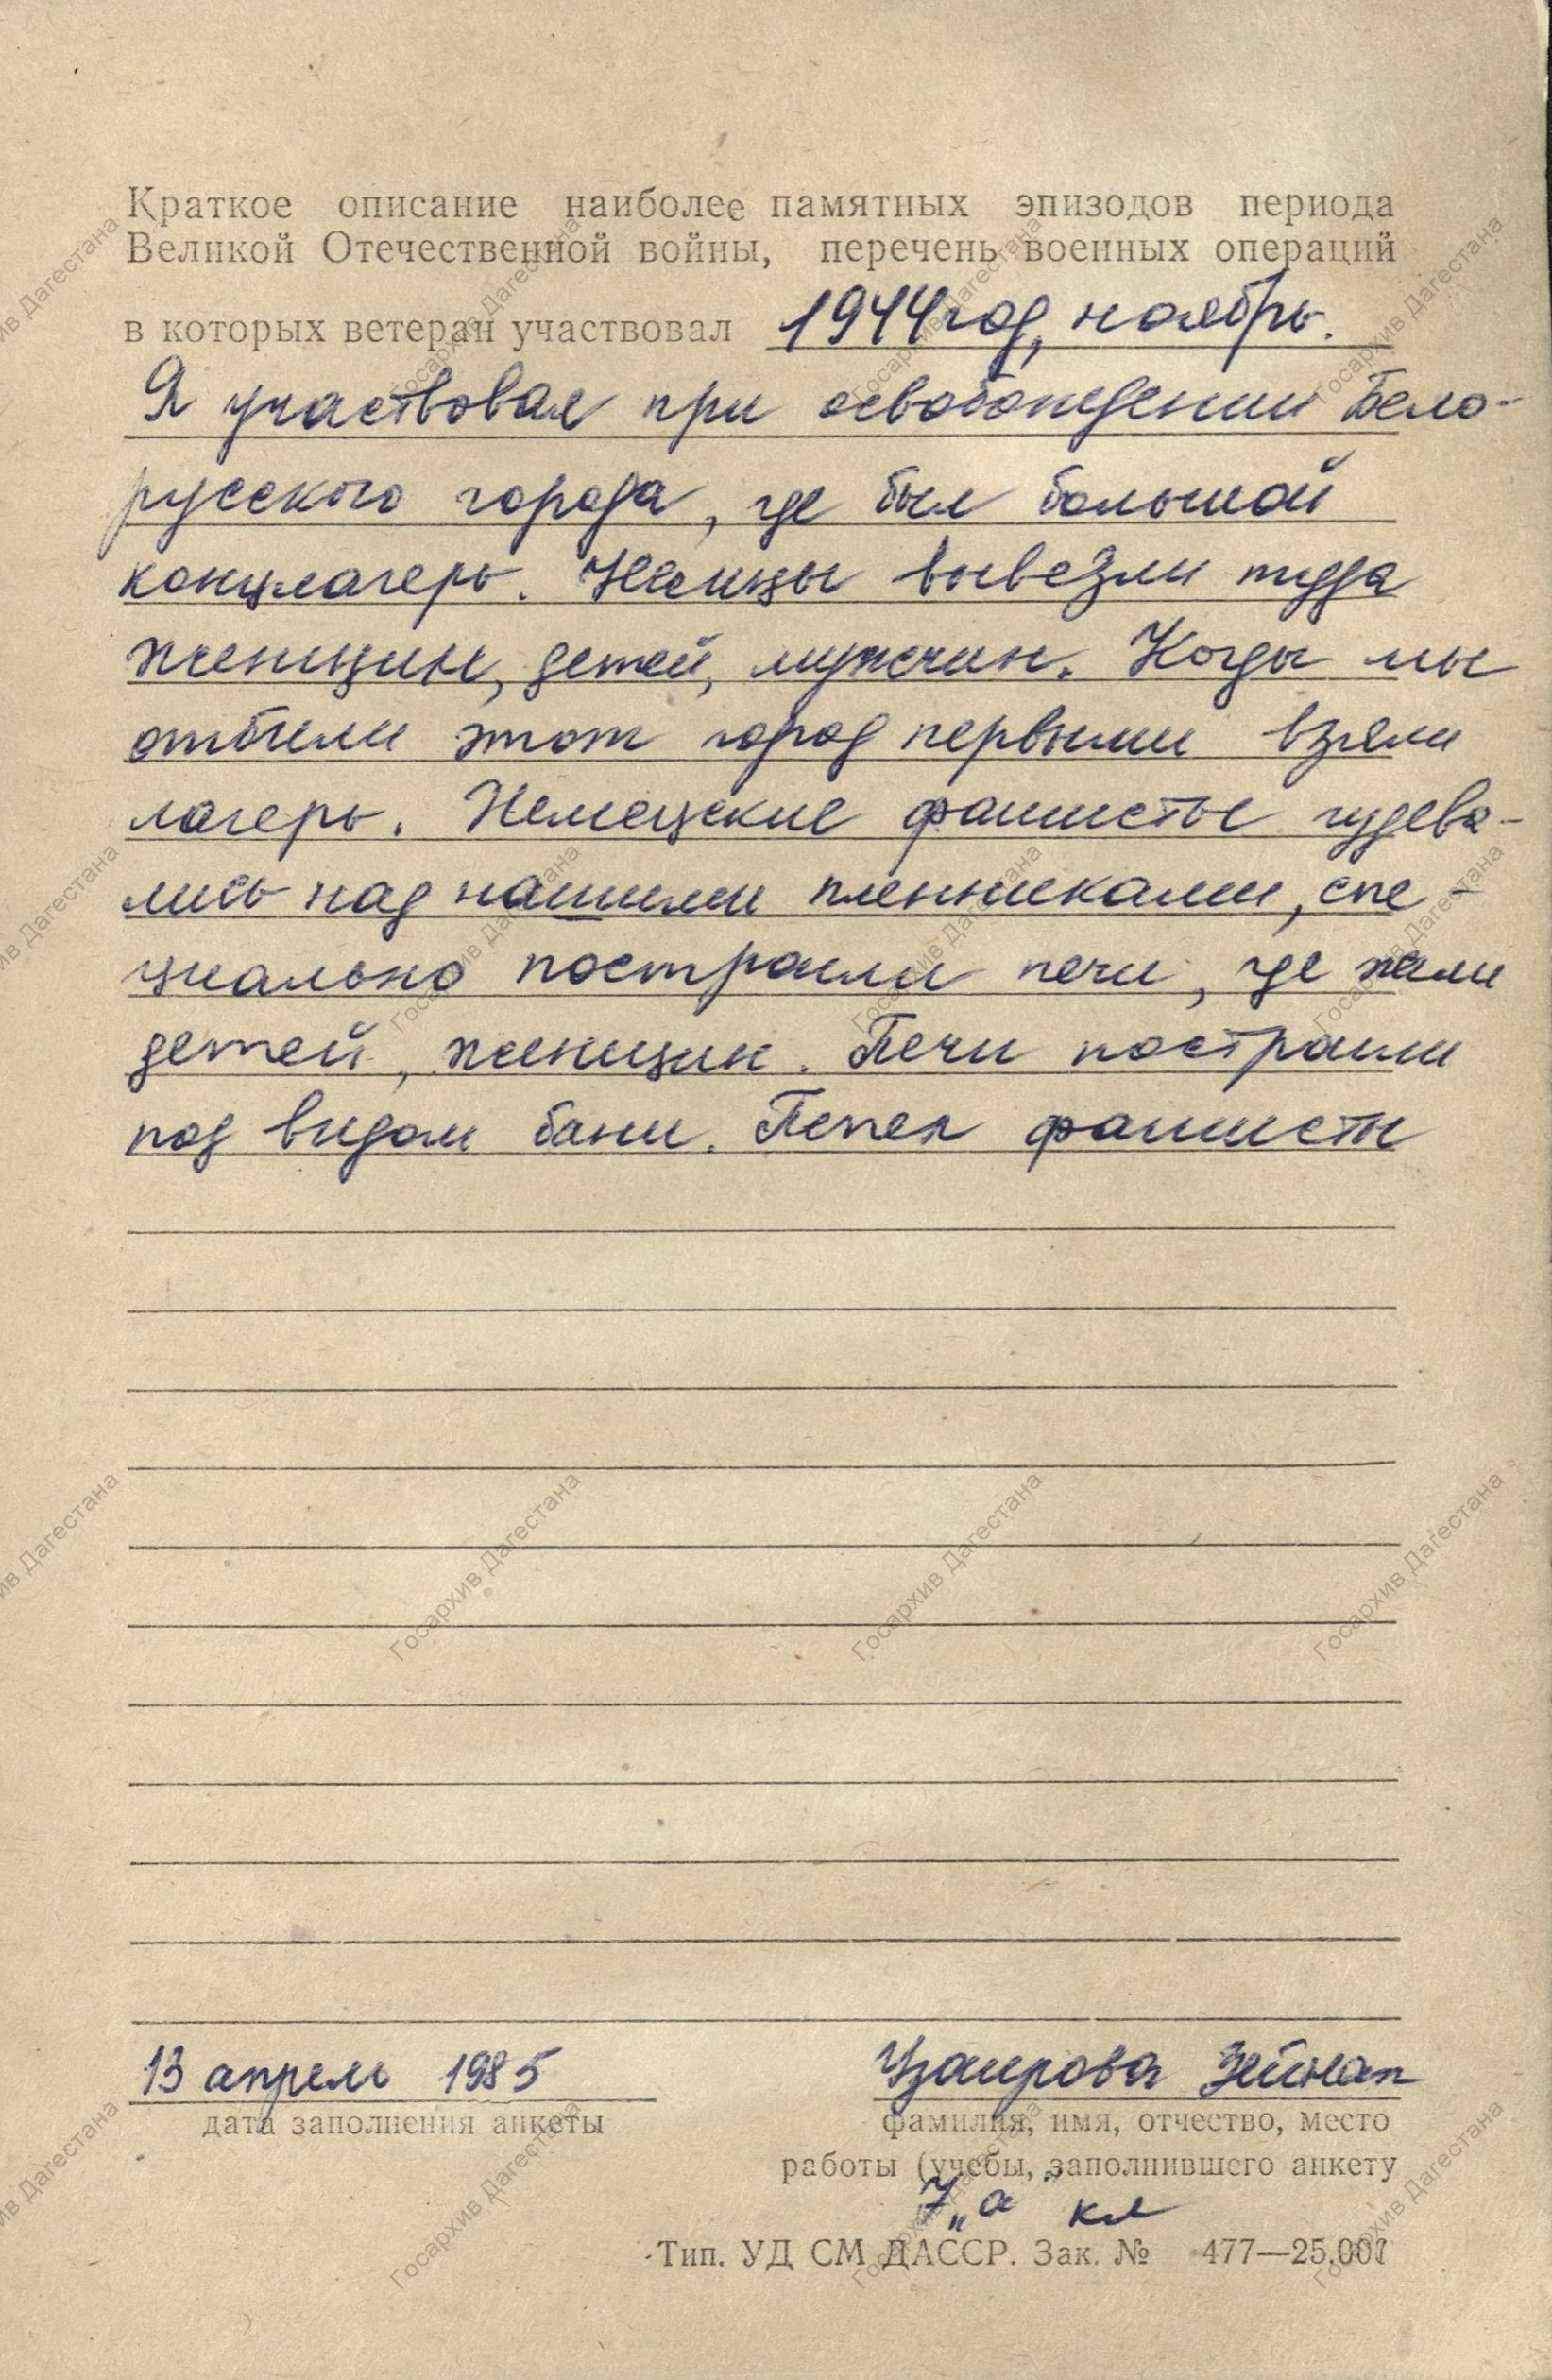 Краткое описание наиболее памятных эпизодов периода
Великой Отечественной войны, перечень военных операций
в которых ветеран участвовал 1944 год, ноябрь.
Я участвовал при освобождении Бело-
русского города, где был большой
концлагерь. Немцы вывезли туда
женщин, детей, мужчин. Когды мы
отбили этот город первыми взяли
лагерь. Немецские фашисты гудева-
лись над нашими пленниками, спе-
циально построили печи, где жгли
детей, женщин. Печи построили
под видом бани. Пепел фашисты
13 апрель 1985
Узаирова Зейнап
дата заполнения анкеты
фамилия, имя, отчество, место
работы (учебы, заполнившего анкету
7 „а" кл
Тип. УД СМ ДАССР. Зак. № 477—25.001
Госархив Дагестана